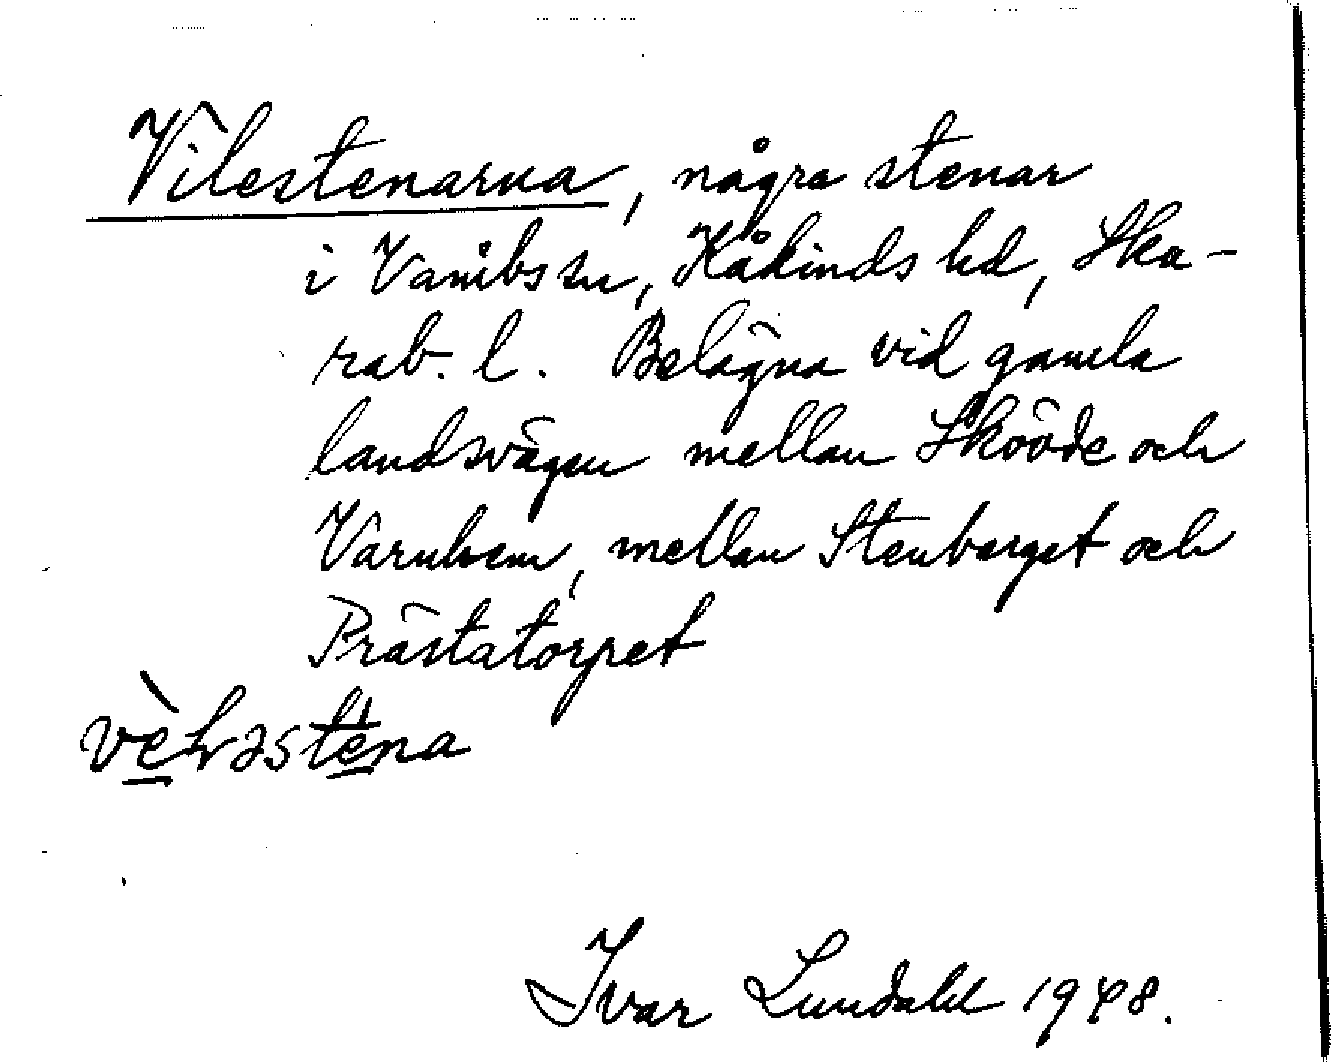 Vilestenarna, några stenar
i Våmbs sn, Kåkinds hd, Ska-
rab. l. Belägna vid gamla
landsvägen mellan Skövde och
Varnhem, mellan Stenberget och
Prästatorpet
Ivar Lundahl 1948.